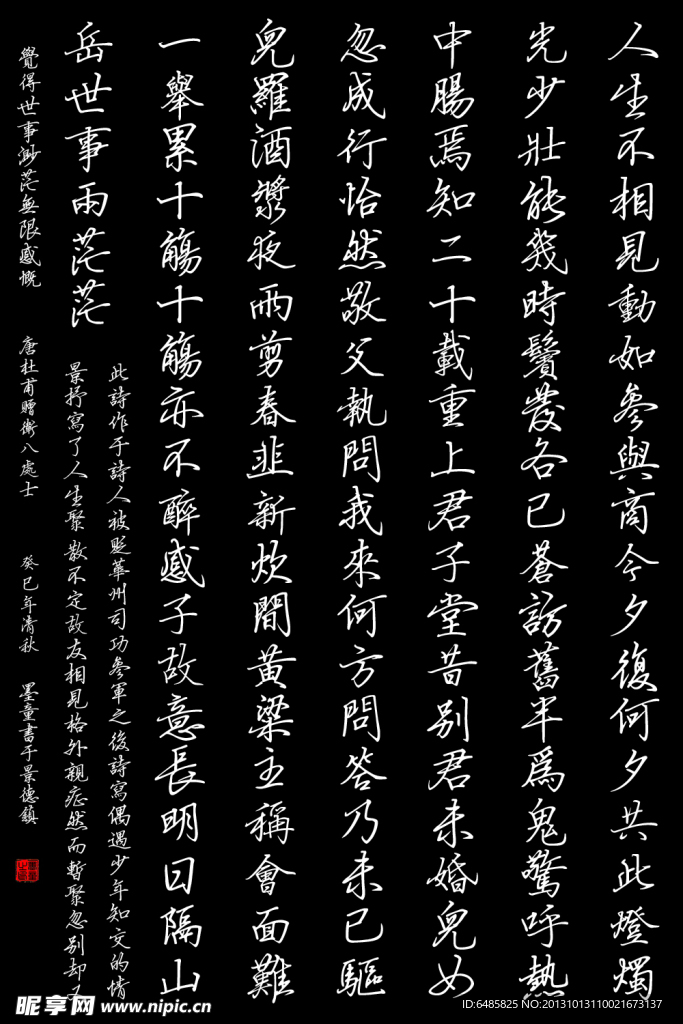 人生不相見動如參與商今夕復何夕共此燈燭
光少壯能幾時鬢發各已蒼訪舊半為鬼驚呼熱
中腸焉知二十載重上君子堂昔別君未婚兒女
忽成行怡然敬父執問我來何方問答乃未已驅
兒羅酒漿夜雨剪春韭新炊間黃粱主稱會面難
一舉累十觴十觴亦不醉感子故意長明日隔山
岳世事兩茫茫
此詩作于詩人被貶華州司功參軍之後詩寫偶遇少年知交的情
景抒寫了人生聚散不定故友相見格外親然而暫聚忽別却又
覺得世事渺茫無限感慨 唐杜甫贈衛八處士 癸巳年清秋 墨童書于景德鎮
昵享网 www.nipic.cn
ID:6485825 NO:20131013110021673137